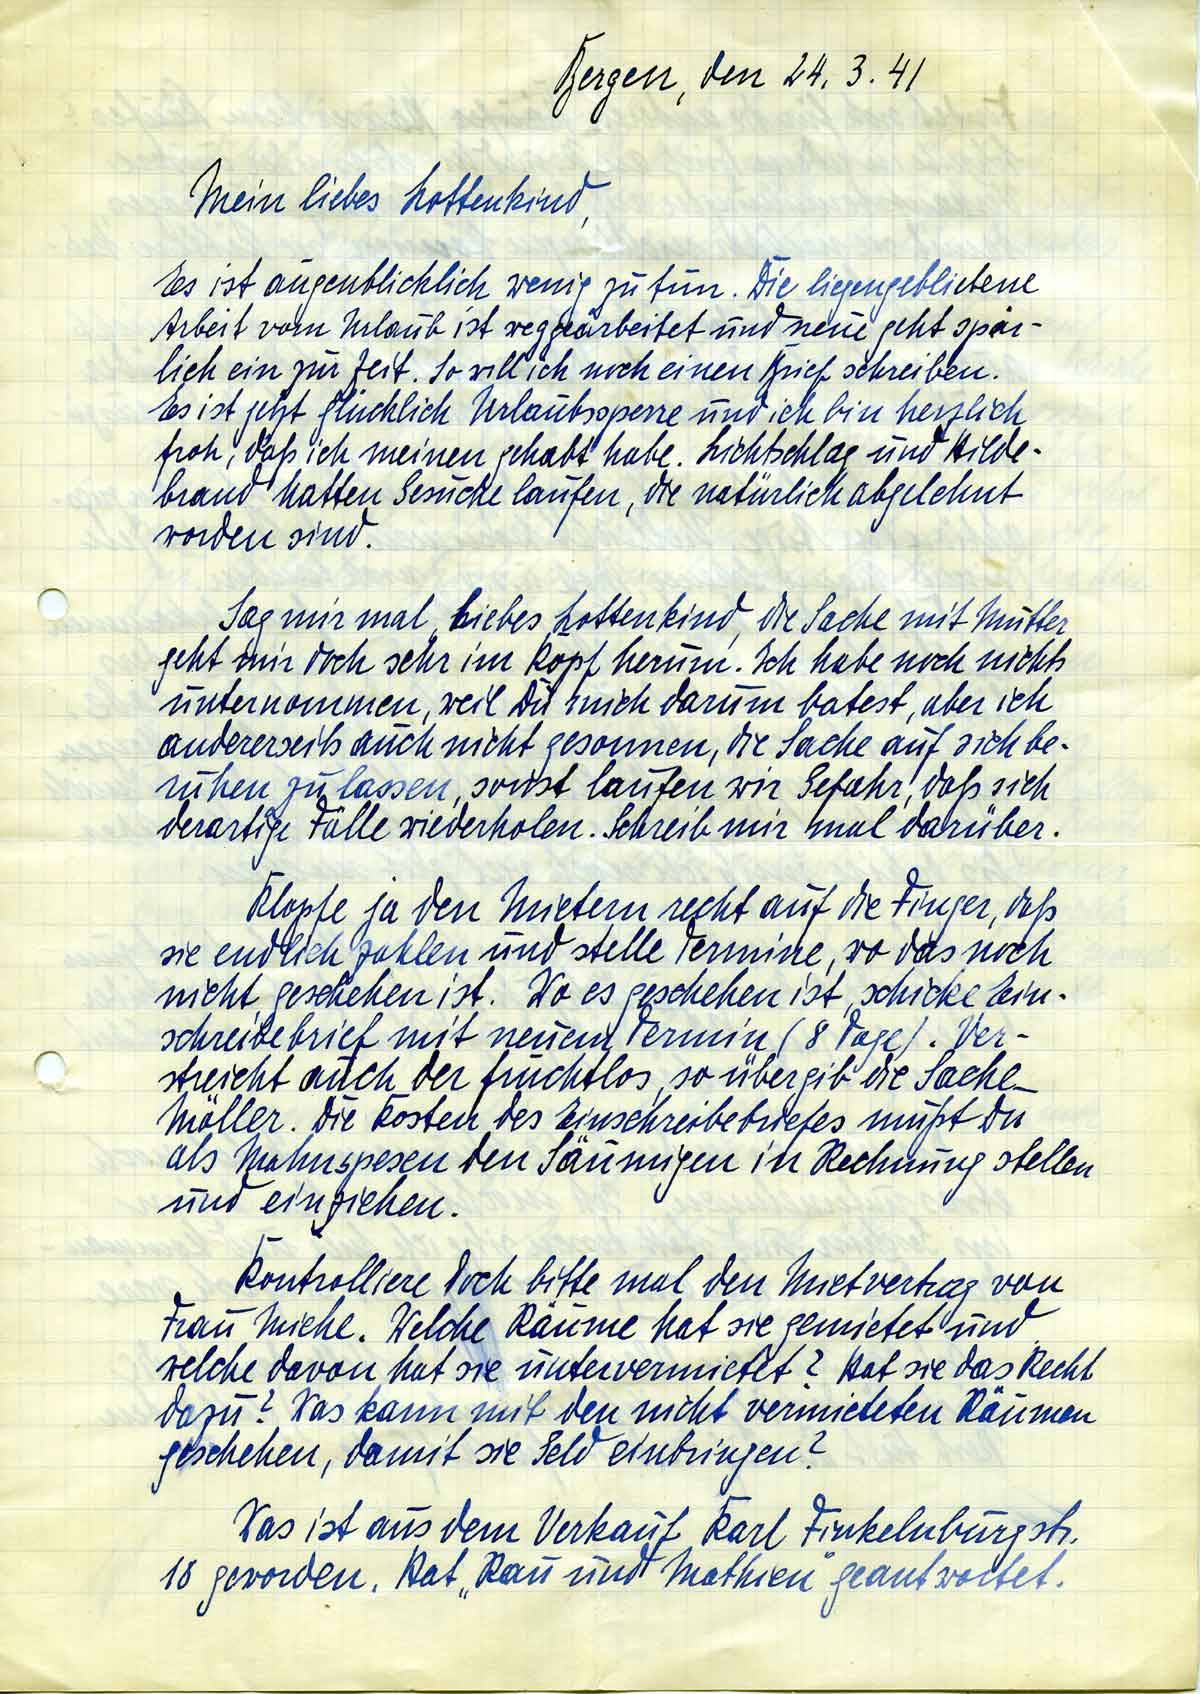 Bergen, den 24. 3. 41
Mein liebes Lottenkind,
Es ist augenblicklich wenig zu tun. Die liegengebliebene
Arbeit vom Urlaub ist weggearbeitet und neue geht spär-
lich ein zur Zeit. So will ich noch einen Brief schreiben.
Es ist jetzt glücklich Urlaubssperre und ich bin herzlich
froh, daß ich meinen gehabt habe. Lichtschlag und Hilde-
brand hatten Gesuche laufen, die natürlich abgelehnt
worden sind.
Sag mir mal, liebes Lottenkind, die Sache mit Mutter
geht mir doch sehr im Kopf herum. Ich habe noch nichts
unternommen, weil Du mich darum batest, aber ich
andererseits auch nicht gesonnen, die Sache auf sich be-
ruhen zu lassen, sonst laufen wir Gefahr, daß sich
derartige Fälle wiederholen. Schreib mir mal darüber.
Klopfe ja den Mietern recht auf die Finger, daß
sie endlich zahlen und stelle Termine, wo das noch
nicht geschehen ist. Wo es geschehen ist, schicke Ein-
schreibebrief mit neuem Termin (8 Tage). Ver-
streicht auch der fruchtlos, so übergib die Sache
Möller. Die Kosten des Einschreibebriefes mußt Du
als Mahnspesen den Säumigen in Rechnung stellen
und einziehen.
Kontrolliere doch bitte mal den Mietvertrag von
Frau Miehe. Welche Räume hat sie gemietet und
welche davon hat sie untervermietet? Hat sie das Recht
dazu? Was kann mit den nicht vermieteten Räumen
geschehen, damit sie Geld einbringen?
Was ist aus dem Verkauf Karl Finkelnburgstr.
18 geworden. Hat „Rau und Mathien" geantwortet.